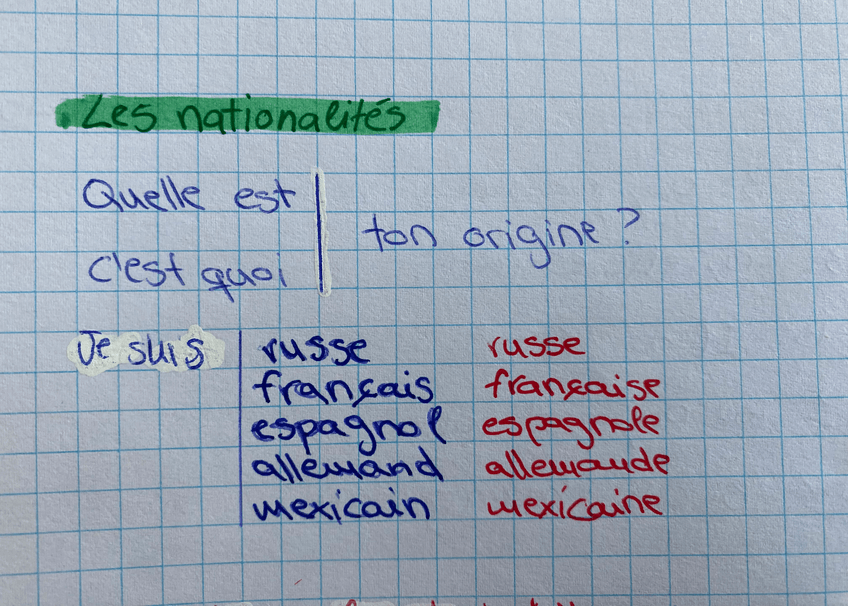 Les nationalités
Quelle est
c'est quoi
ton origine ?
Je suis
russe russe
français française
espagnol espagnole
allemand allemande
mexicain mexicaine